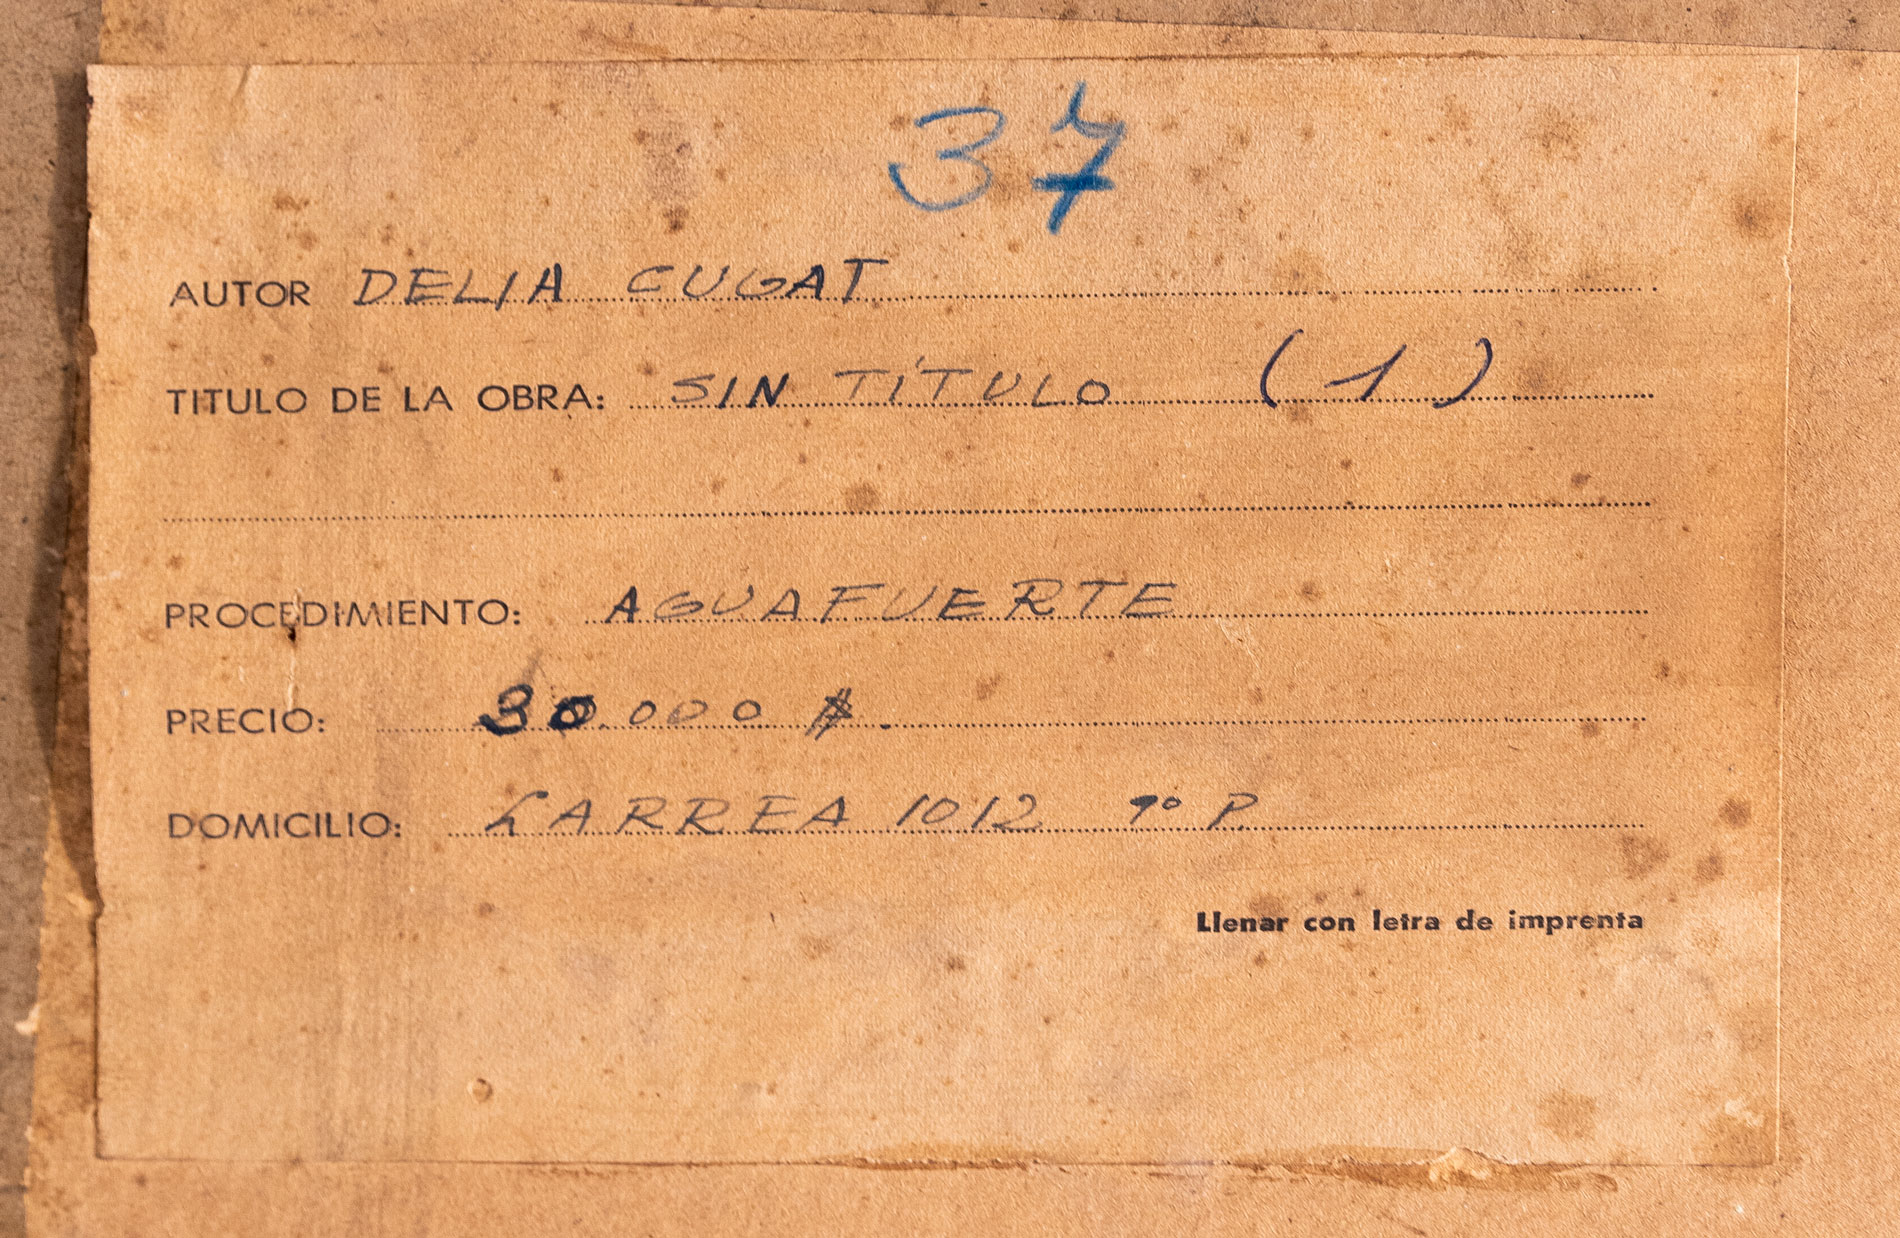 37
AUTOR DELIA CUGAT
TITULO DE LA OBRA: SIN TÍTULO (1)
PROCEDIMIENTO: AGUAFUERTE
PRECIO: 30.000 $.
DOMICILIO: LARREA 1012 P.
Llenar con letra de imprenta